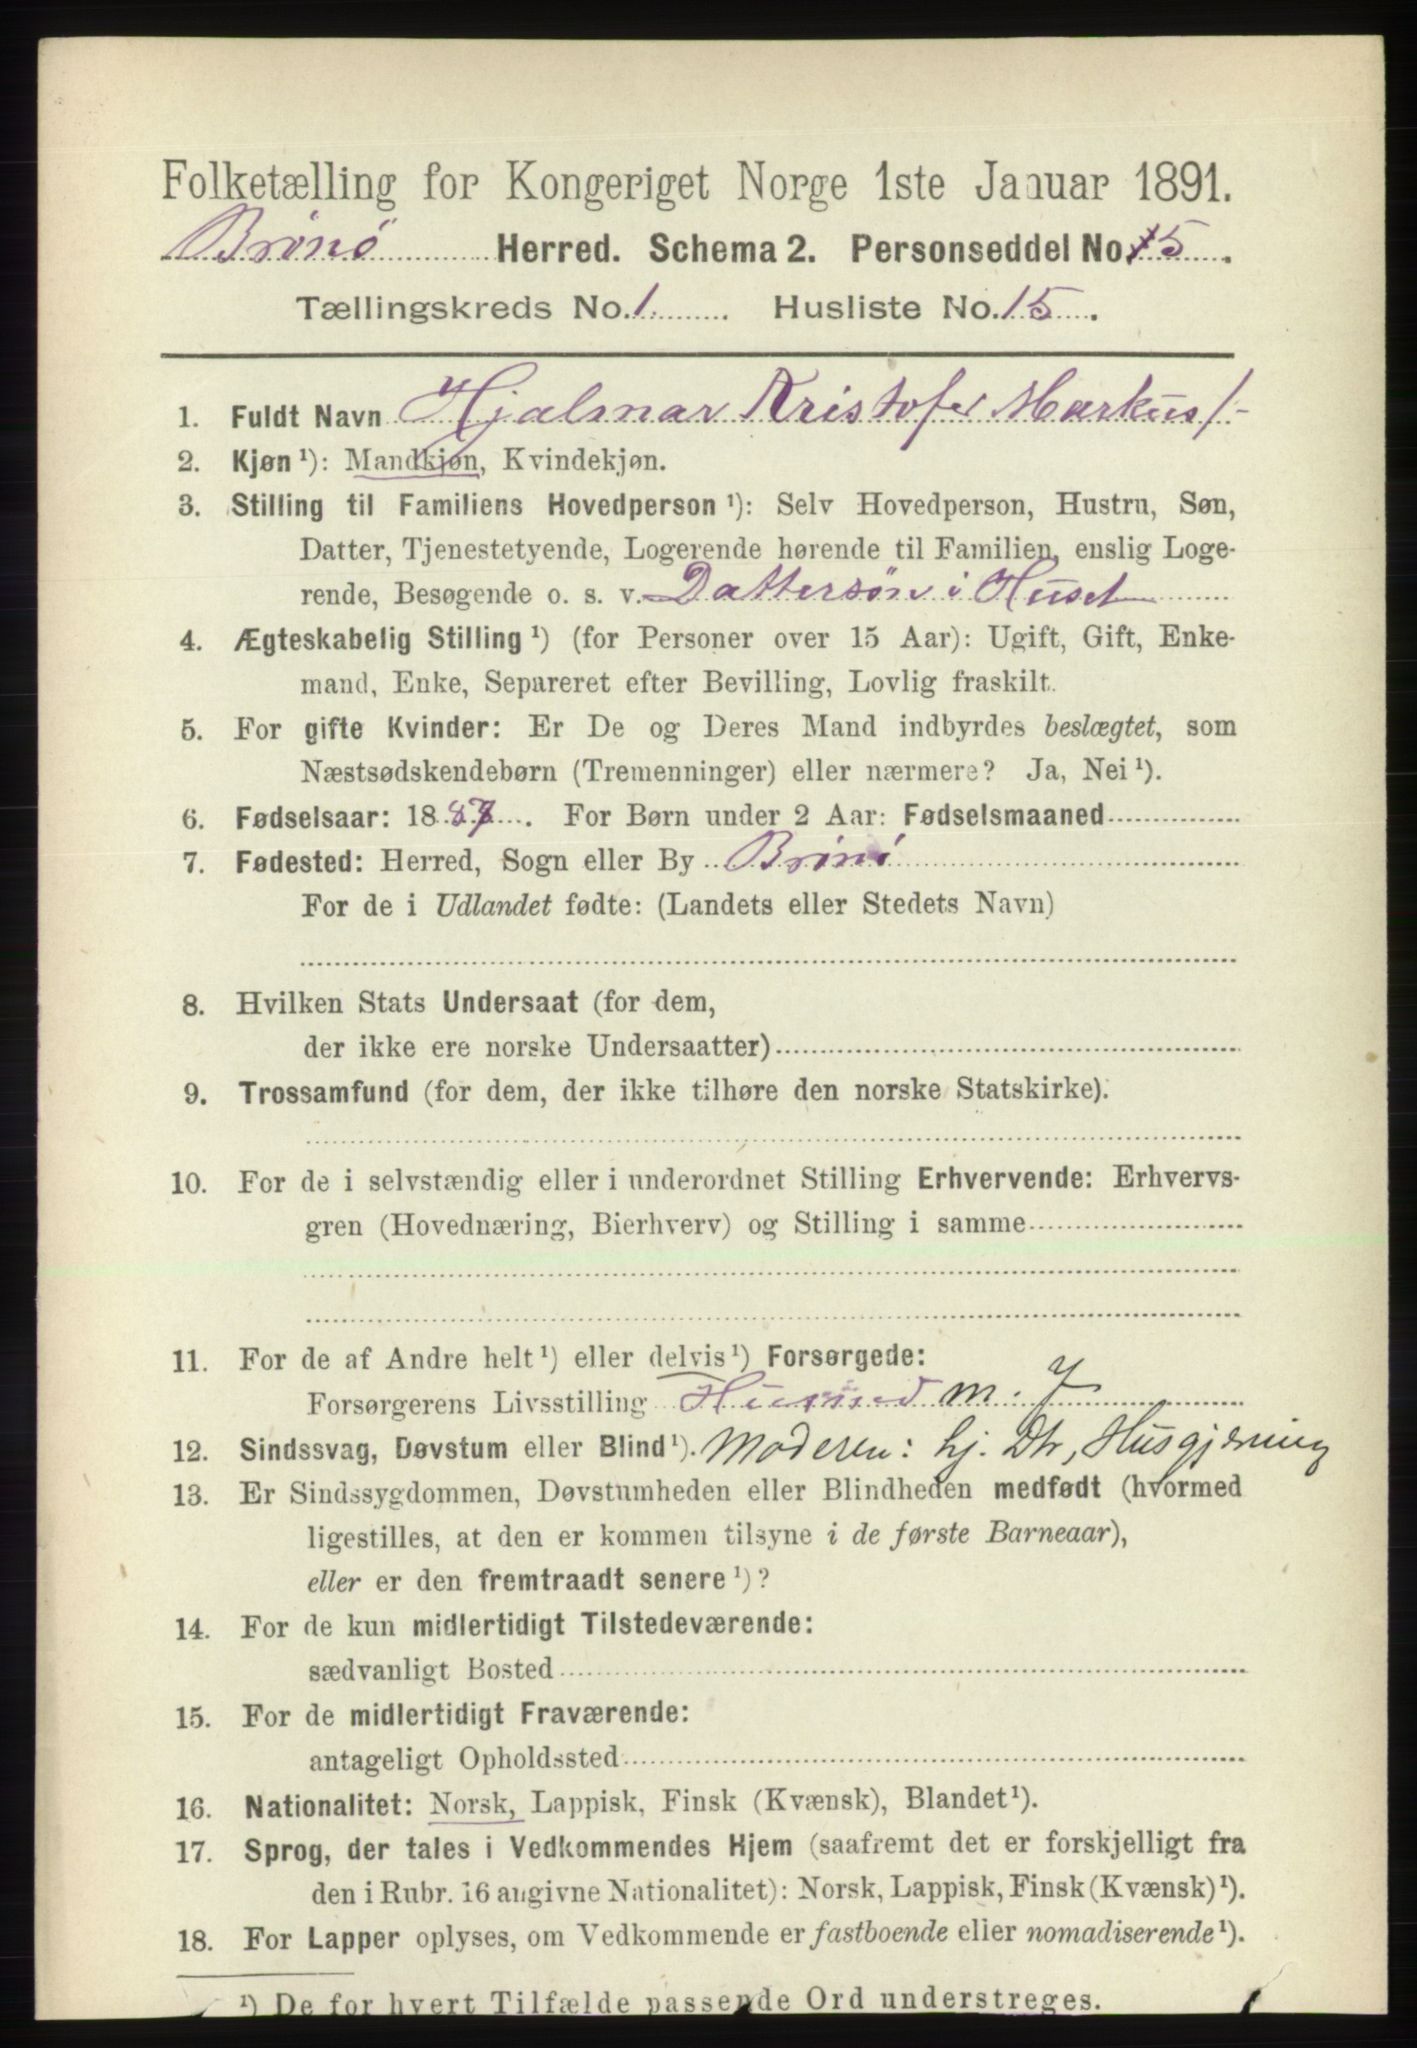 Folketælling for Kongeriget Norge 1ste Januar 1891.
Brönö Herred. Schema 2. Personseddel No. 5
Tællingskreds No. 1. Husliste No. 15.
1. Fuldt Navn Hjalmar Kristofer Markus
2. Kjøn ¹): Mandkjøn, Kvindekjøn.
3. Stilling til Familiens Hovedperson ¹): Selv Hovedperson, Hustru, Søn,
Datter, Tjenestetyende, Logerende hørende til Familien, enslig Loge-
rende, Besøgende o. s. v. Dattersön i Huset
4. Ægteskabelig Stilling ¹) (for Personer over 15 Aar): Ugift, Gift, Enke-
mand, Enke, Separeret efter Bevilling, Lovlig fraskilt.
5. For gifte Kvinder: Er De og Deres Mand indbyrdes beslægtet, som
Næstsødskendebørn (Tremenninger) eller nærmere? Ja, Nei ¹).
6. Fødselsaar: 1887. For Børn under 2 Aar: Fødselsmaaned
7. Fødested: Herred, Sogn eller By Brönö
For de i Udlandet fødte: (Landets eller Stedets Navn)
8. Hvilken Stats Undersaat (for dem,
der ikke ere norske Undersaatter)
9. Trossamfund (for dem, der ikke tilhøre den norske Statskirke).
10. For de i selvstændig eller i underordnet Stilling Erhvervende: Erhvervs-
gren (Hovednæring, Bierhverv) og Stilling i samme
11. For de af Andre helt ¹) eller delvis ¹) Forsørgede:
Forsørgerens Livsstilling Husmd m. J
12. Sindssvag, Døvstum eller Blind ¹). Moderen: hj. Dtr, Husgjerning
13. Er Sindssygdommen, Døvstumheden eller Blindheden medfødt (hvormed
ligestilles, at den er kommen tilsyne i de første Barneaar),
eller er den fremtraadt senere ¹)?
14. For de kun midlertidigt Tilstedeværende:
sædvanligt Bosted
15. For de midlertidigt Fraværende:
antageligt Opholdssted
16. Nationalitet: Norsk, Lappisk, Finsk (Kvænsk), Blandet ¹).
17. Sprog, der tales i Vedkommendes Hjem (saafremt det er forskjelligt fra
den i Rubr. 16 angivne Nationalitet): Norsk, Lappisk, Finsk (Kvænsk) ¹).
18. For Lapper oplyses, om Vedkommende er fastboende eller nomadiserende ¹).
¹) De for hvert Tilfælde passende Ord understreges.